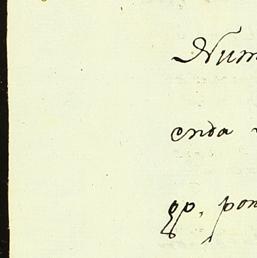 Num
enda
qp. pon